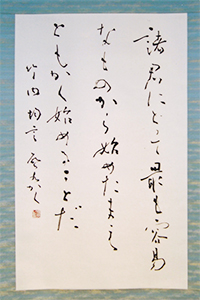 諸君にとって最も容易
なものから始めたまえ
ともかく始めることだ
竹内均言